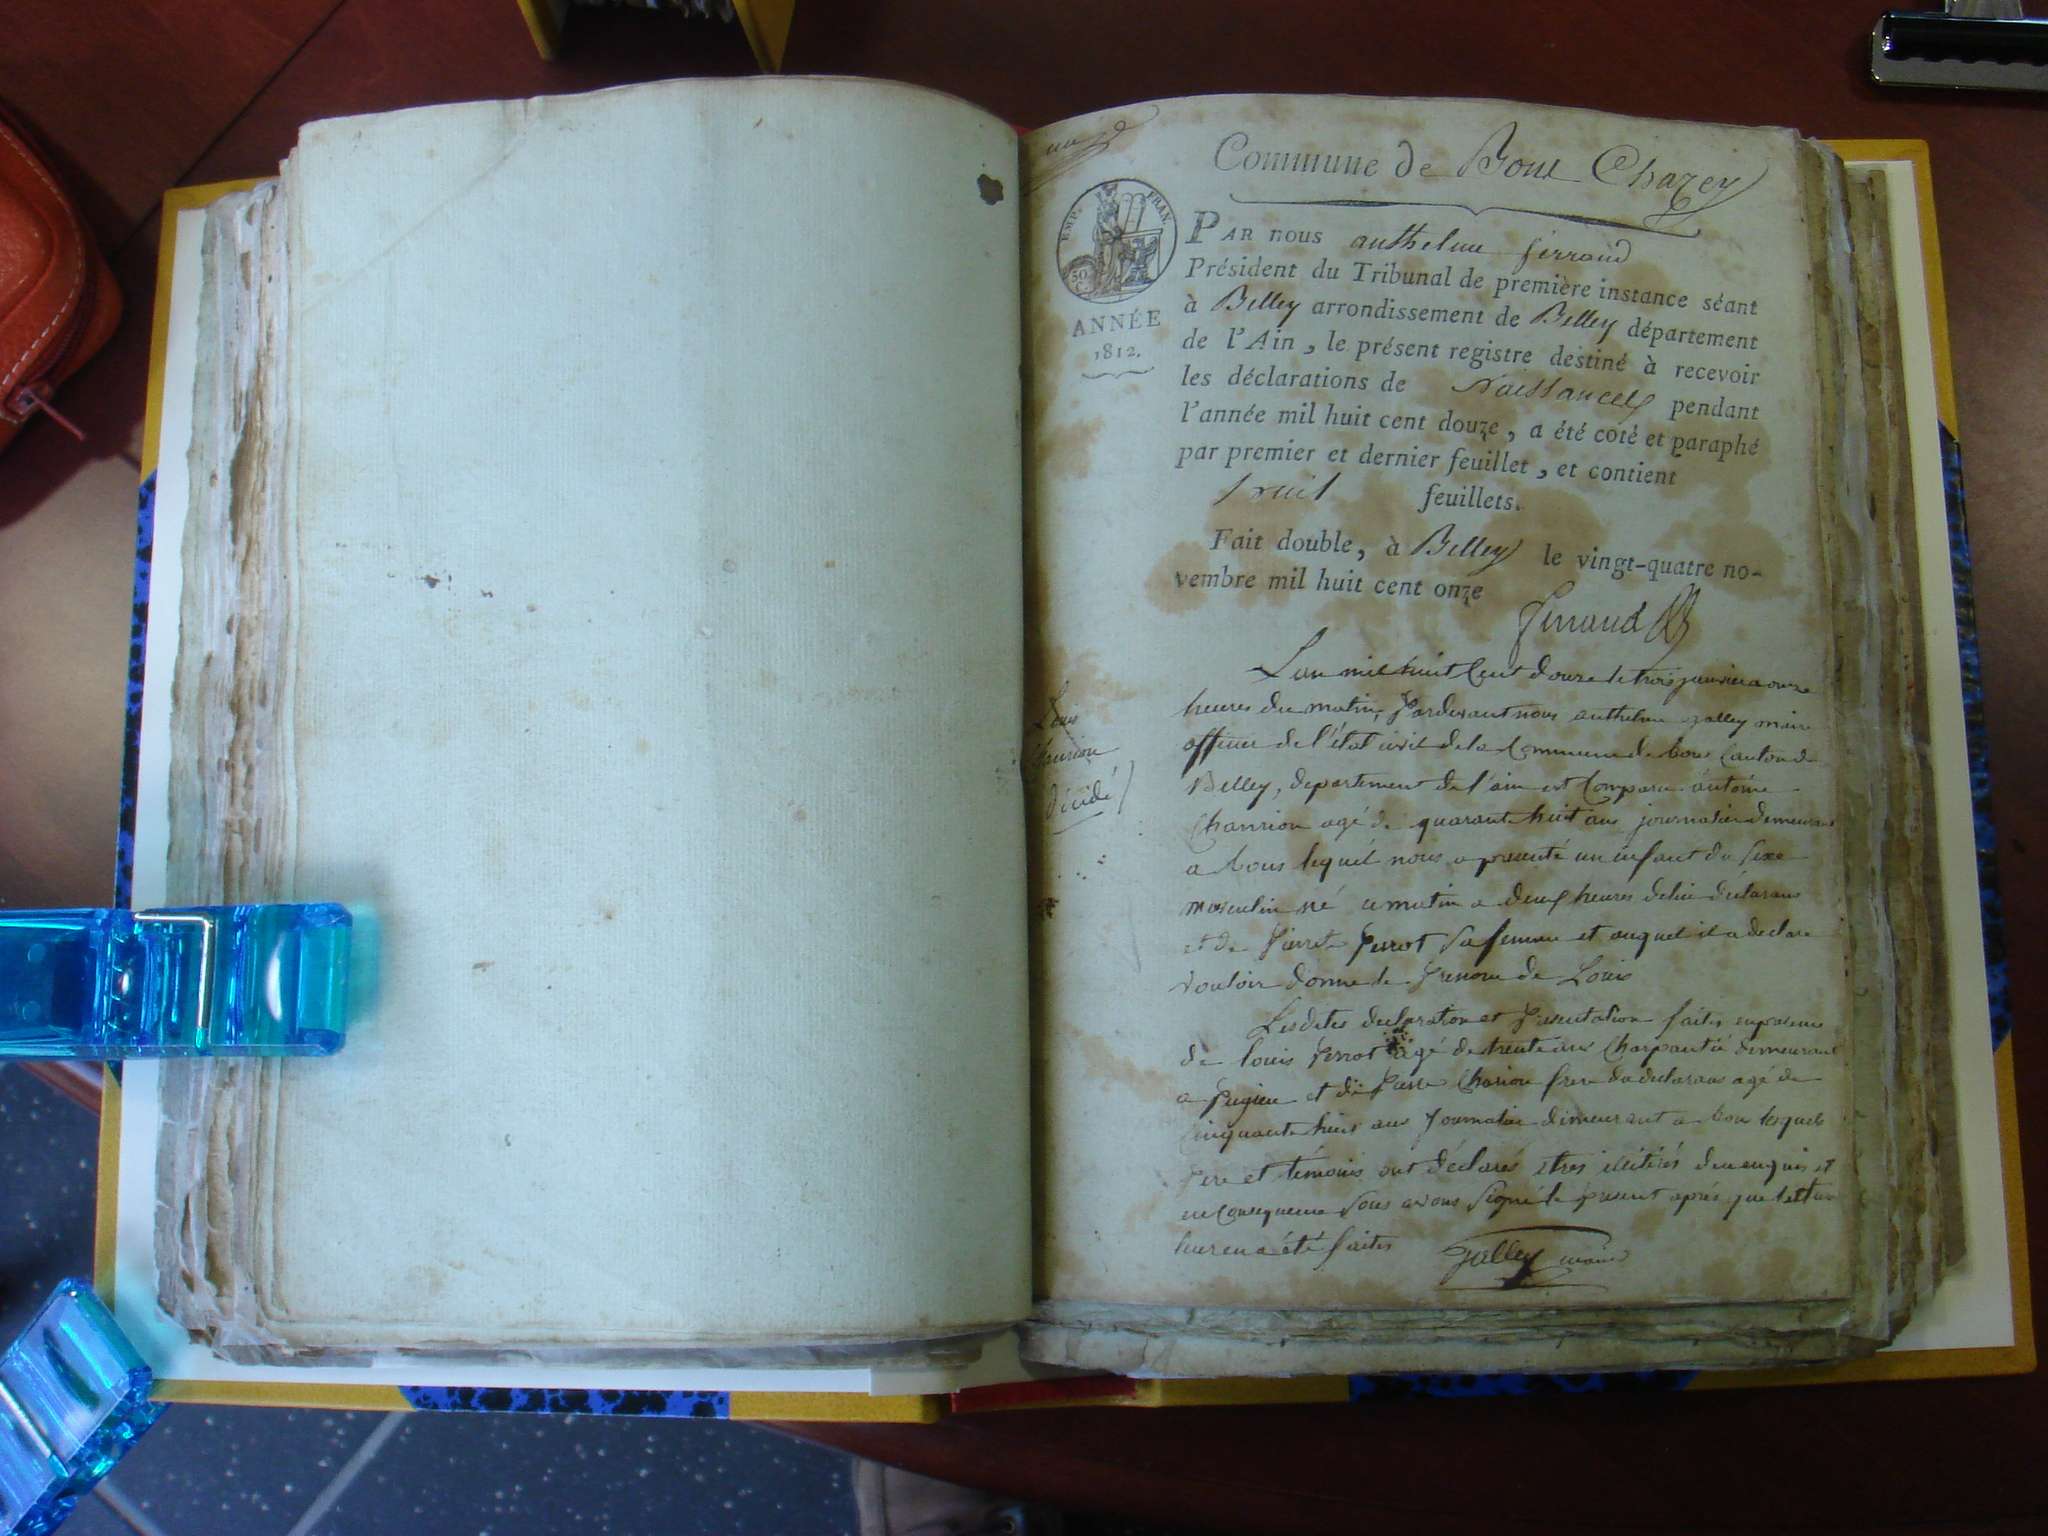 un
Commune de Bons Chazey
EMP. FRAN.
50
C.
ANNÉE
1812.
PAR nous anthelme ferrand
Président du Tribunal de première instance séant
à Belley arrondissement de Belley département
de l'Ain, le présent registre destiné à recevoir
les déclarations de Naissances pendant
l'année mil huit cent douze, a été coté et paraphé
par premier et dernier feuillet, et contient
huit feuillets.
Fait double, à Belley le vingt-quatre no-
vembre mil huit cent onze
ferrand
Louis
Chanrion
décédé
L'an mil huit Cent douze le trois janvier a onze
heures du matin, Pardevant nous anthelme galley maire
officier de l'état civil de la Commune de bons Canton de
Belley, departement de l'ain est Comparu antoine
Chanrion agé de quarante huit ans journalier demeurant
a bons lequel nous a presenté un enfant du sexe
masculin né ce matin a deux heures de lui déclarant
et de Pierrete Perrot sa femme et auquel il a declaré
vouloir donné le Prenom de Louis
Lesdites declaration et Presentation faites en presence
de louis Perrot agé de trente ans Charpantié demeurant
a Pugieu et de Pierre Charion frere du declarant agé de
Cinquante huit ans Journalier demeurant a bons lesquels
Pere et témoins ont déclarés etres illitérés de ce enquis et
en Consequence Nous avons Signé le present après que lecture
leur en a été faites
galley maire